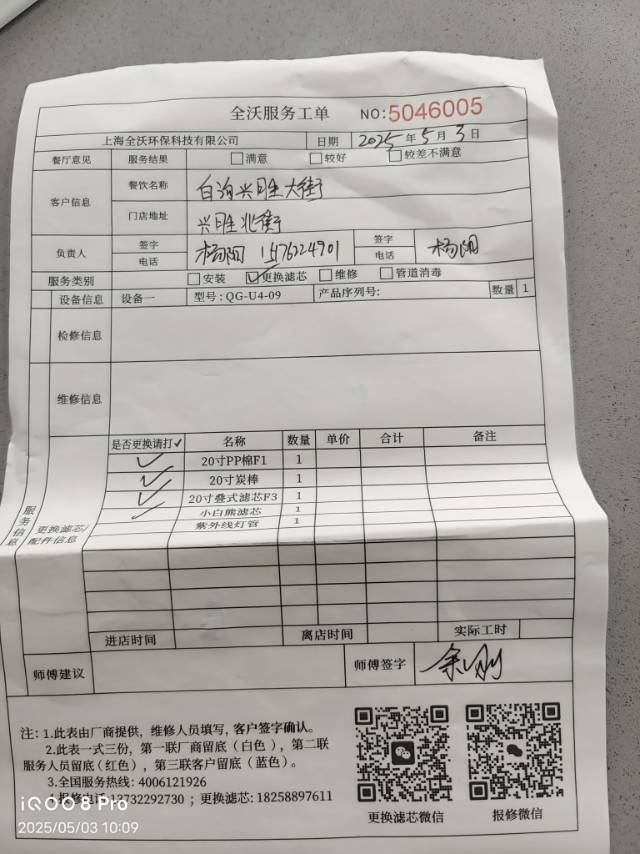 全沃服务工单 NO:5046005
上海全沃环保科技有限公司 日期 2025年5月3日
餐厅意见 服务结果 满意 较好 较差不满意
客户信息 餐饮名称 大街
门店地址 兴旺北街
负责人 签字 电话 杨阳 签字 电话 杨阳
服务类别 安装 ✓更换滤芯 维修 管道消毒
设备信息 设备一 型号:QG-U4-09 产品序列号: 数量 1
检修信息
维修信息
服务信息 更换滤芯/配件信息
是否更换请打✓ 名称 数量 单价 合计 备注
✓ 20寸PP棉F1 1
✓ 20寸炭棒 1
✓ 20寸叠式滤芯F3 1
✓ 小白熊滤芯 1
紫外线灯管 1
进店时间 离店时间 实际工时
师傅建议 师傅签字 余刚
注: 1.此表由厂商提供, 维修人员填写, 客户签字确认。
2.此表一式三份, 第一联厂商留底 (白色), 第二联
服务人员留底(红色), 第三联客户留底 (蓝色)。
3.全国服务热线: 4006121926
报修电话:13732292730 ; 更换滤芯: 18258897611
更换滤芯微信 报修微信
iQOO 8 Pro
2025/05/03 10:09